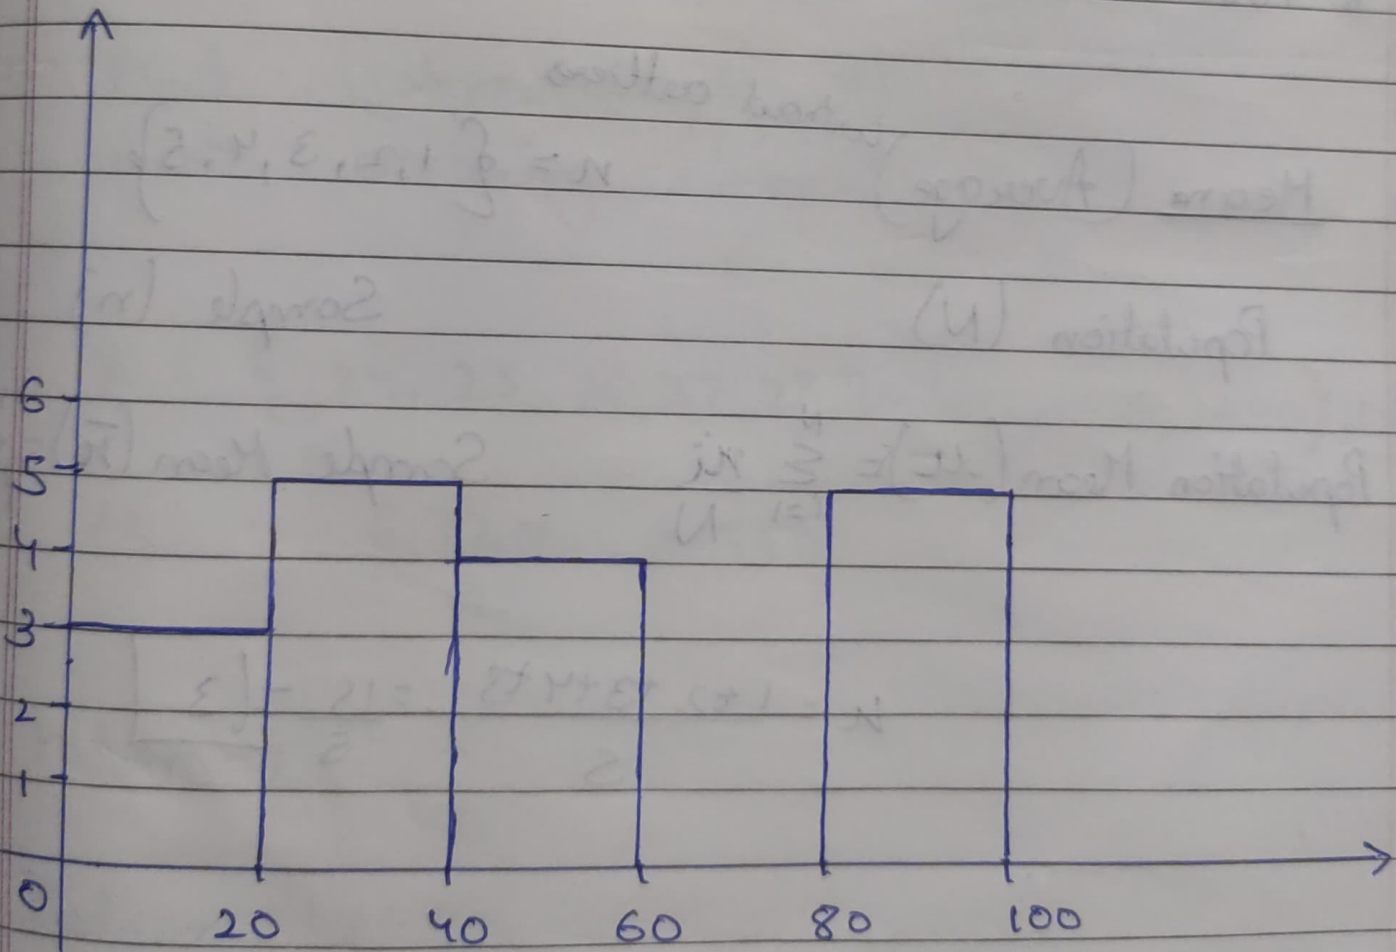 6
5
4
3
2
1
0
20 40 60 80 100